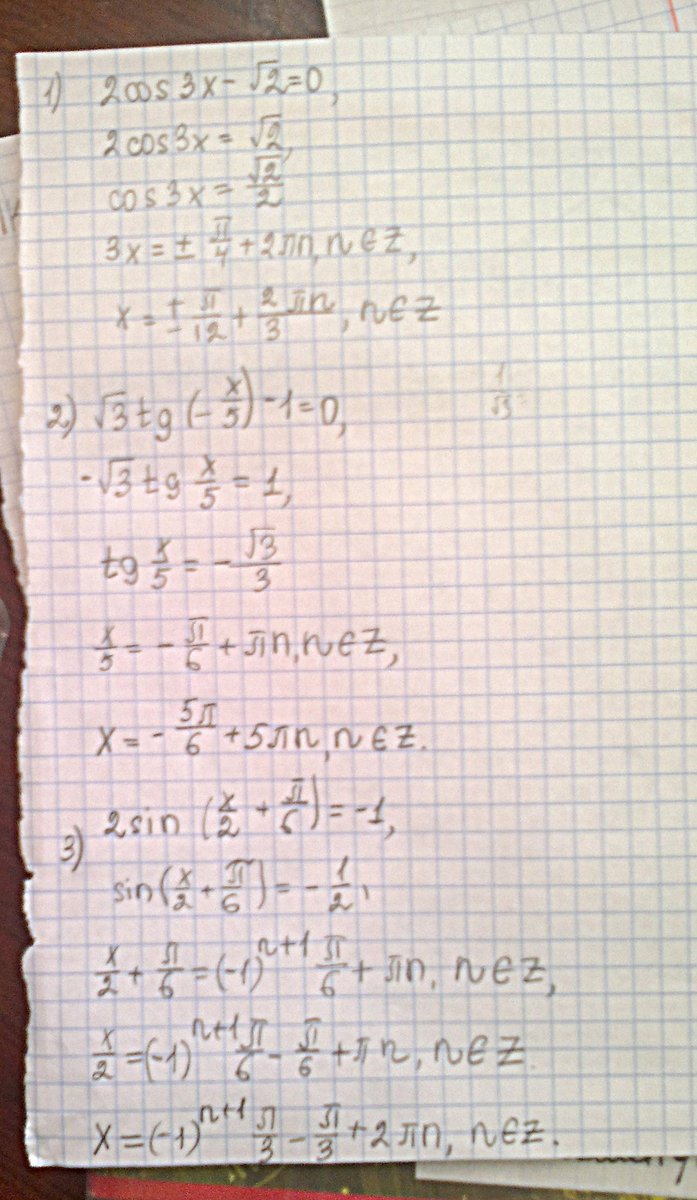 1) 2cos 3x - √2 = 0,
2cos3x = √2,
cos 3x = √2/2
3x = ± π/4 + 2πn, n ∈ Z,
x = ± π/12 + 2πn/3, n ∈ Z
2) √3 tg (-x/5) - 1 = 0,
1/√3 =
-√3 tg x/5 = 1,
tg x/5 = - √3/3
x/5 = - π/6 + πn, n ∈ Z,
x = - 5π/6 + 5πn, n ∈ Z.
3) 2sin (x/2 + π/6) = -1,
sin (x/2 + π/6) = - 1/2,
x/2 + π/6 = (-1)^(n+1) π/6 + πn, n ∈ Z,
x/2 = (-1)^(n+1) π/6 - π/6 + πn, n ∈ Z.
x = (-1)^(n+1) π/3 - π/3 + 2πn, n ∈ Z.